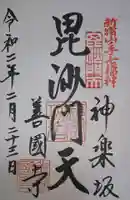 神楽坂
毘沙門天
善國寺
令和二年二月二十二日